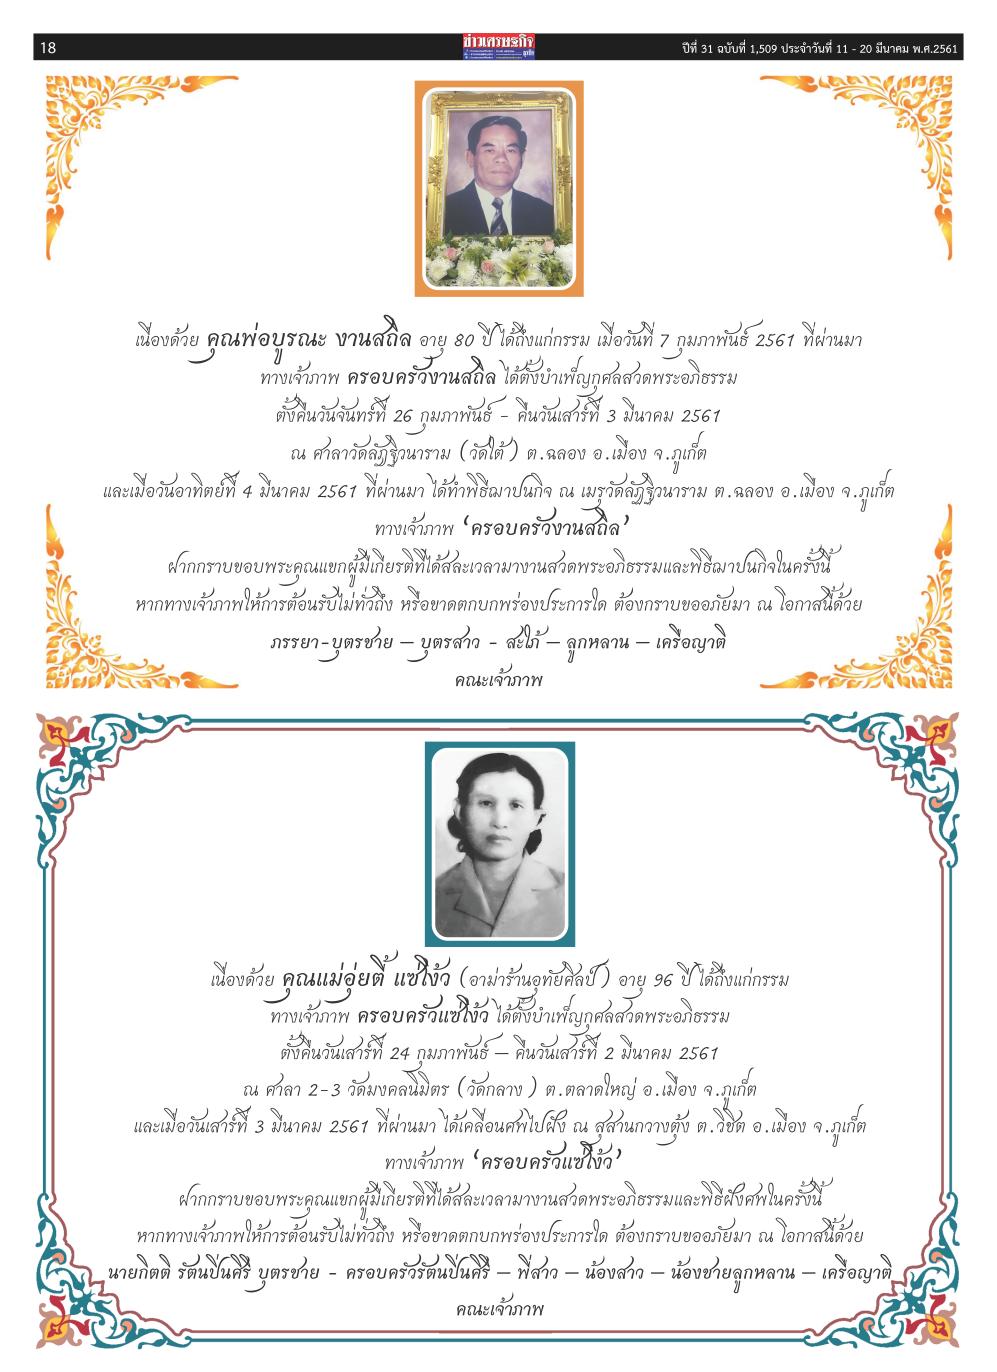 18
ข่าวเศรษฐกิจ
ภูเก็ต
ปีที่ 31 ฉบับที่ 1,509 ประจำวันที่ 11 - 20 มีนาคม พ.ศ.2561
เนื่องด้วย คุณพ่อบูรณะ งานสถิล อายุ 80 ปี ได้ถึงแก่กรรม เมื่อวันที่ 7 กุมภาพันธ์ 2561 ที่ผ่านมา
ทางเจ้าภาพ ครอบครัวงานสถิล ได้ตั้งบำเพ็ญกุศลสวดพระอภิธรรม
ตั้งคืนวันจันทร์ที่ 26 กุมภาพันธ์ - คืนวันเสาร์ที่ 3 มีนาคม 2561
ณ ศาลาวัดลัฏฐิวนาราม (วัดใต้ ) ต.ฉลอง อ.เมือง จ.ภูเก็ต
และเมื่อวันอาทิตย์ที่ 4 มีนาคม 2561 ที่ผ่านมา ได้ทำพิธีฌาปนกิจ ณ เมรุวัดลัฏฐิวนาราม ต.ฉลอง อ.เมือง จ.ภูเก็ต
ทางเจ้าภาพ ‘ครอบครัวงานสถิล’
ฝากกราบขอบพระคุณแขกผู้มีเกียรติที่ได้สละเวลามางานสวดพระอภิธรรมและพิธีฌาปนกิจในครั้งนี้
หากทางเจ้าภาพให้การต้อนรับไม่ทั่วถึง หรือขาดตกบกพร่องประการใด ต้องกราบขออภัยมา ณ โอกาสนี้ด้วย
ภรรยา-บุตรชาย – บุตรสาว - สะใภ้ – ลูกหลาน – เครือญาติ
คณะเจ้าภาพ
เนื่องด้วย คุณแม่อุ่ยตี้ แซ่โง้ว (อาม่าร้านอุทัยศิลป์ ) อายุ 96 ปี ได้ถึงแก่กรรม
ทางเจ้าภาพ ครอบครัวแซ่โง้ว ได้ตั้งบำเพ็ญกุศลสวดพระอภิธรรม
ตั้งคืนวันเสาร์ที่ 24 กุมภาพันธ์ – คืนวันเสาร์ที่ 2 มีนาคม 2561
ณ ศาลา 2-3 วัดมงคลนิมิตร (วัดกลาง ) ต.ตลาดใหญ่ อ.เมือง จ.ภูเก็ต
และเมื่อวันเสาร์ที่ 3 มีนาคม 2561 ที่ผ่านมา ได้เคลื่อนศพไปฝัง ณ สุสานกวางตุ้ง ต.วิชิต อ.เมือง จ.ภูเก็ต
ทางเจ้าภาพ ‘ครอบครัวแซ่โง้ว’
ฝากกราบขอบพระคุณแขกผู้มีเกียรติที่ได้สละเวลามางานสวดพระอภิธรรมและพิธีฝังศพในครั้งนี้
หากทางเจ้าภาพให้การต้อนรับไม่ทั่วถึง หรือขาดตกบกพร่องประการใด ต้องกราบขออภัยมา ณ โอกาสนี้ด้วย
นายกิตติ รัตนปิ่นศิริ บุตรชาย - ครอบครัวรัตนปิ่นศิริ – พี่สาว – น้องสาว – น้องชายลูกหลาน – เครือญาติ
คณะเจ้าภาพ